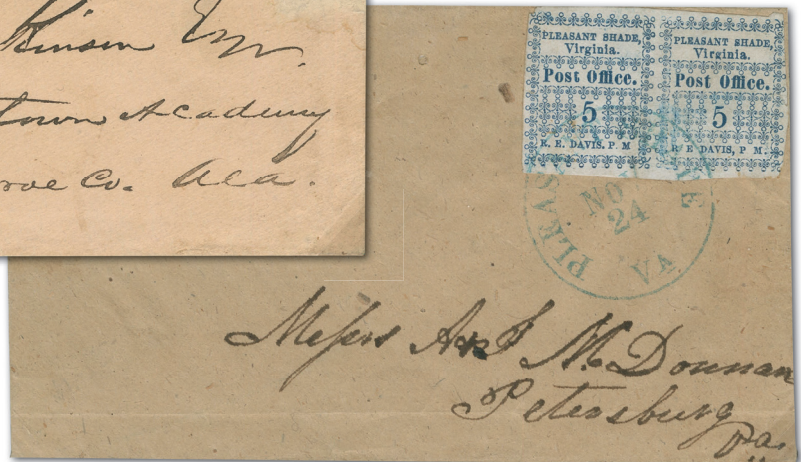 Kinson Esqr.
town Academy
roe Co. Ala.
PLEASANT SHADE,
Virginia.
Post Office.
5
R. E. DAVIS, P. M.
PLEASANT SHADE,
Virginia.
Post Office.
5
R. E. DAVIS, P. M.
PLEAS
DE
NOV
24
VA
Messrs A & J McDonnan
Petersburg
Va.